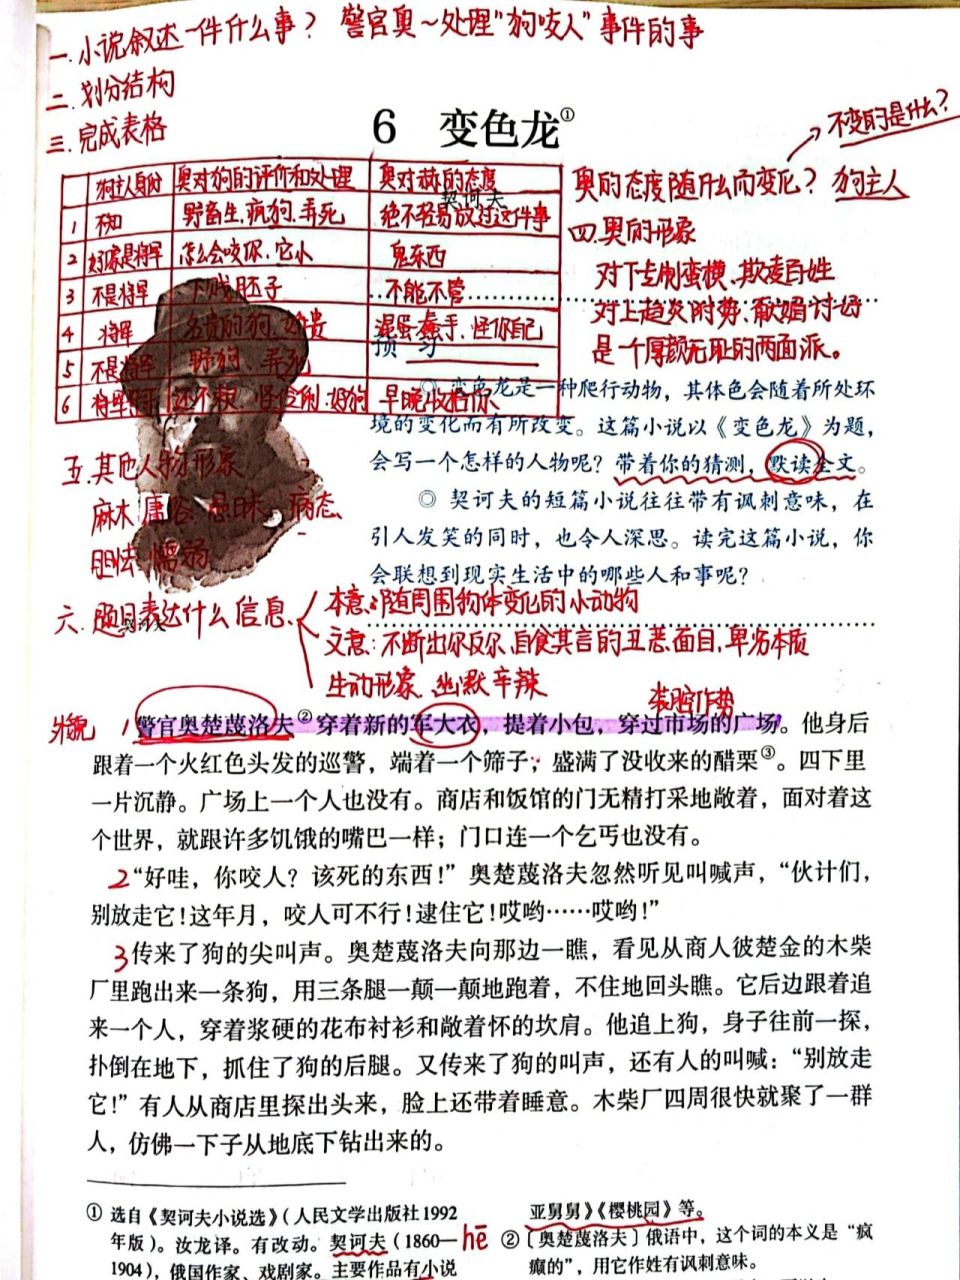 一.小说叙述一件什么事？ 警官奥～处理“狗咬人”事件的事
二.划分结构
三.完成表格
6 变色龙①
不变的是什么？
契诃夫
狗主人身份 奥对狗的评价和处理 奥对赫的态度
1 不知 野畜生、疯狗、弄死 绝不轻易放过这件事
2 好像是将军 怎么会咬你、它小 鬼东西
3 不是将军 下贱胚子 不能不管
4 将军 名贵的狗、娇贵 混蛋、蠢手、怪你自己
5 不是将军 野狗、弄死
6 将军哥哥 还不赖 怪伶俐、好狗 早晚收拾你
奥的态度随什么而变化？ 狗主人
四.奥的形象
对下专制蛮横、欺凌百姓
对上趋炎附势、献媚讨好
是一个厚颜无耻的两面派。
预 习
◎ 变色龙是一种爬行动物，其体色会随着所处环
境的变化而有所改变。这篇小说以《变色龙》为题，
会写一个怎样的人物呢？带着你的猜测，默读全文。
◎ 契诃夫的短篇小说往往带有讽刺意味，在
引人发笑的同时，也令人深思。读完这篇小说，你
会联想到现实生活中的哪些人和事呢？
五.其他人物形象
麻木 庸俗 愚昧 病态
胆怯 懦弱
契诃夫
六.题目表达什么信息
本意：随周围物体变化的小动物
文意：不断出尔反尔、自食其言的丑恶面目、卑劣本质
生动形象、幽默辛辣
装腔作势
外貌
1 警官奥楚蔑洛夫②穿着新的军大衣，提着小包，穿过市场的广场。他身后
跟着一个火红色头发的巡警，端着一个筛子，盛满了没收来的醋栗③。四下里
一片沉静。广场上一个人也没有。商店和饭馆的门无精打采地敞着，面对着这
个世界，就跟许多饥饿的嘴巴一样；门口连一个乞丐也没有。
2 “好哇，你咬人？该死的东西！”奥楚蔑洛夫忽然听见叫喊声，“伙计们，
别放走它！这年月，咬人可不行！逮住它！哎哟……哎哟！”
3 传来了狗的尖叫声。奥楚蔑洛夫向那边一瞧，看见从商人彼楚金的木柴
厂里跑出来一条狗，用三条腿一颠一颠地跑着，不住地回头瞧。它后边跟着追
来一个人，穿着浆硬的花布衬衫和敞着怀的坎肩。他追上狗，身子往前一探，
扑倒在地下，抓住了狗的后腿。又传来了狗的叫声，还有人的叫喊：“别放走
它！”有人从商店里探出头来，脸上还带着睡意。木柴厂四周很快就聚了一群
人，仿佛一下子从地底下钻出来的。
① 选自《契诃夫小说选》（人民文学出版社1992
年版）。汝龙译。有改动。契诃夫（1860—
1904），俄国作家、戏剧家。主要作品有小说
hē
亚舅舅》《樱桃园》等。
② 〔奥楚蔑洛夫〕俄语中，这个词的本义是“疯
癫的”，用它作姓有讽刺意味。